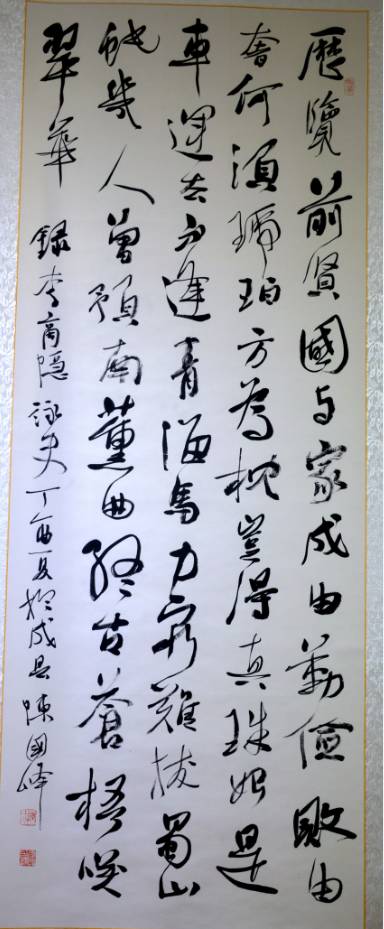 歷覽前賢國与家成由勤儉敗由
奢何須琥珀方為枕豈得真珠始是
車運去不逢青海馬力窮難拔蜀山
蛇幾人曾預南薰曲終古蒼梧哭
翠華 錄李商隐詠史丁酉夏於成县陳國峰